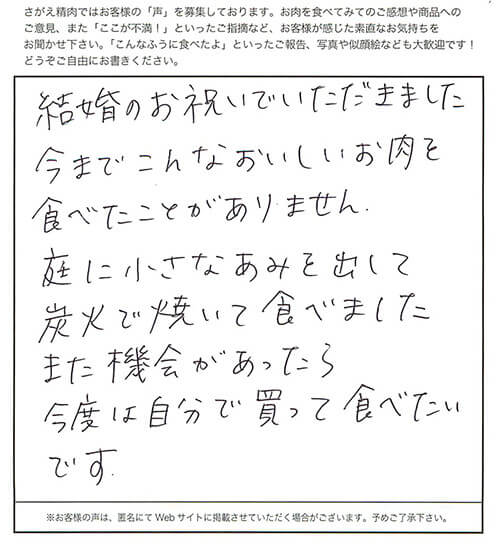 さがえ精肉ではお客様の「声」を募集しております。お肉を食べてみてのご感想や商品への
ご意見、また「ここが不満！」といったご指摘など、お客様が感じた素直なお気持ちを
お聞かせ下さい。「こんなふうに食べたよ」といったご報告、写真や似顔絵なども大歓迎です！
どうぞご自由にお書きください。
結婚のお祝いでいただきました
今までこんなおいしいお肉を
食べたことがありません.
庭に小さなあみを出して
炭火で焼いて食べました
また機会があったら
今度は自分で買って食べたい
です.
※お客様の声は、匿名にてWebサイトに掲載させていただく場合がございます。予めご了承下さい。